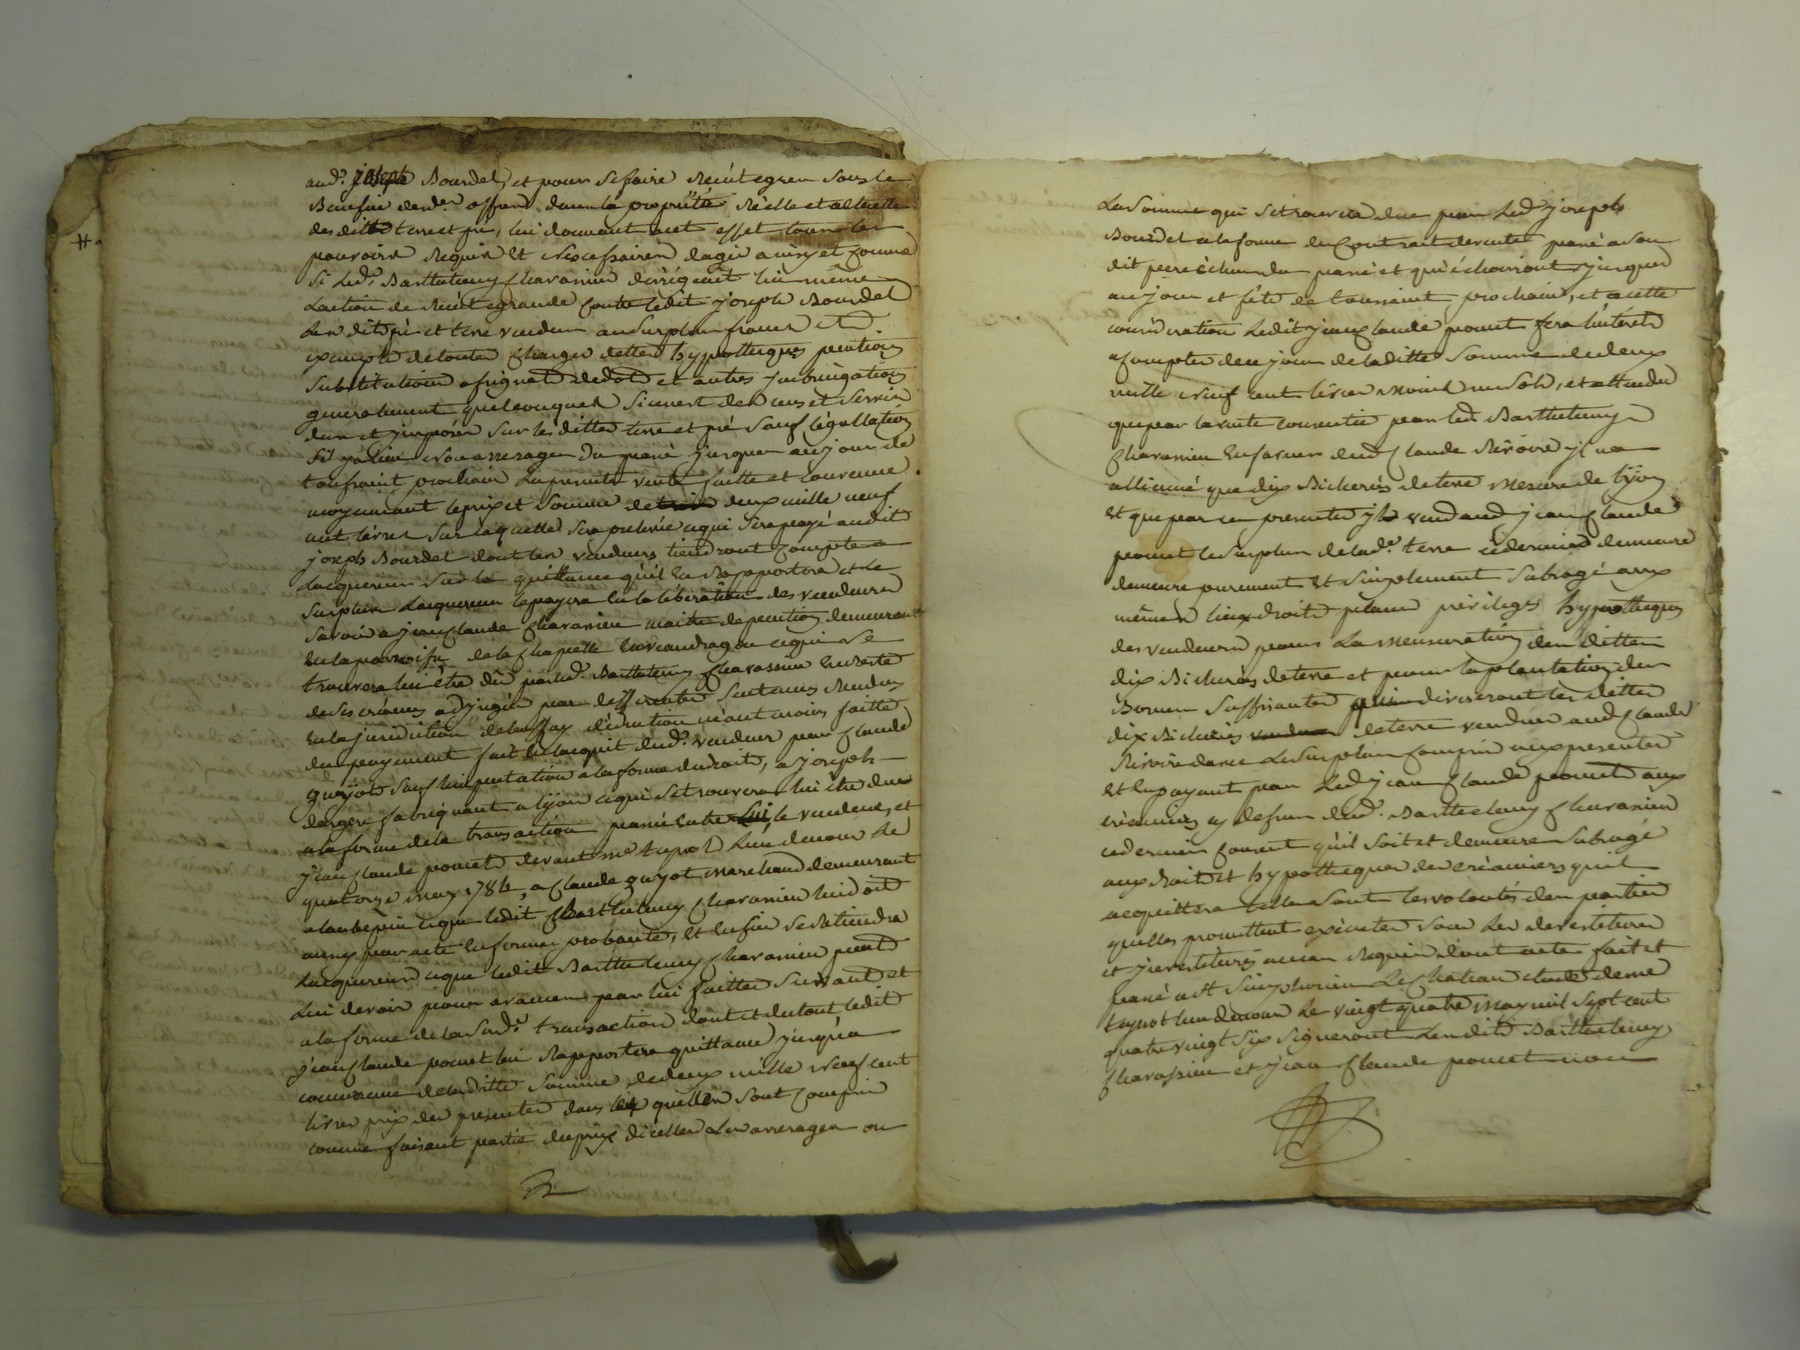 aud.t joseph Bourdel, et pour se faire reintegrer sous le
Benefice desd.es offres dans la propriété réelle et actuelle
des dittes terre et pré, lui donnant a cet effet tous les
pouvoirs requis et necessaires d'agir ainsy et comme
si led.t Barthelemy Charassin dirigeoit lui même
L'action de réintegrande contre ledit joseph Bourdel
Lesdits pré et terre vendus au surplus francs et
exempts de toutes charges dettes hypotheques pentions
substitutions assignat de dot et autres
generalement quelconques si ce n'est des cens et servis
dus et imposés sur lesdittes terre et pré sauf l'égallation
s'il y a lieu non arrerages du passé jusques au jour de
toussaint prochain La presente vente faitte et convenue
moyennant le prix et somme de deux mille neuf
cent livres sur laquelle sera prelevé ce qui sera payé audit
joseph Bourdel dont les vendeurs tiendront compte a
Lacquereur sur la quittance qu'il en rapportera et le
surplus Lacquereur le payera en la libération des vendeurs
savoir a jean Claude Charassin maitre de pention demeurant
en la parroisse de la Chapelle ce qui se
trouvera lui être dû par led.t Barthelemy Charassin en reste
de ses créances adjugées par differentes sentences rendues
en la juridiction de néant moins faitte
du payement fait en l'acquit dud.t vendeur par Claude
guyot sauf l'imputation a la forme du droit, a joseph
fabriquant a lyon ce qui se trouvera lui être dû
a la forme de la transaction passée entre lui le vendeur, et
jean Claude poncet devant me tupnot l'un de nous le
quatorze may 1784, a Claude guyot marchand demeurant
a ce que ledit Barthelemy Charassin lui doit
aussy par acte en forme probante, et enfin se retiendra
Lacquereur ce que ledit Barthelemy Charassin peut
Lui devoir pour avances par lui faittes suivant et
a la forme de la susd.e transaction dont et du tout ledit
jean Claude poncet lui rapportera quittance jusqu'a
concurrence de laditte somme de deux mille neuf cent
livres prix des presentes dans lesquelles sont compris
comme faisant partie du prix d'icelles les arrerages ou
La somme qui se trouvera due par led.t joseph
Bourdel a la forme du Contrat de vente passé a son
dit pere échus du passé et qui échoiront jusques
au jour et fête de toussaint prochain, et a cette
consideration ledit jean Claude poncet fera l'interet
a compter de ce jour de laditte somme de deux
mille neuf cent livres moins un sols, et attendu
que par la vente consentie par led.t Barthelemy
Charassin en faveur dud.t Claude Rivoire il n'a
allienné que dix Bicherés de terre mesure de lyon
et que par ces presentes il vend aud.t jean Claude
poncet le surplus de lad.e terre ce dernier demeure
demeure purement et simplement subrogé aux
mêmes lieu droits place privileges hypotheques
des vendeurs pour La mensuration desdittes
dix Bicherés de terre et pour la plantation des
Bornes suffisantes qui diviseront lesdittes
dix Bicherés vendues de terre vendues aud.t Claude
Rivoire davec Le surplus compris aux presentes
et en payant par led.t jean Claude poncet aux
créanciers cy dessus dud.t Barthelemy Charassin
ce dernier consent qu'il soit et demeure subrogé
aux droits et hypotheques des créanciers qu'il
acquittera telles sont les volontés des parties
qu'elles promettent exécuter sous les devestitures
et investitures au cas requis dont acte fait et
passé a St Simphorien Le Chateau etude de me
tupnot l'un de nous Le vingt quatre may mil sept cent
quatre vingt six signeront lesdits Barthelemy
Charassin et jean Claude poncet non